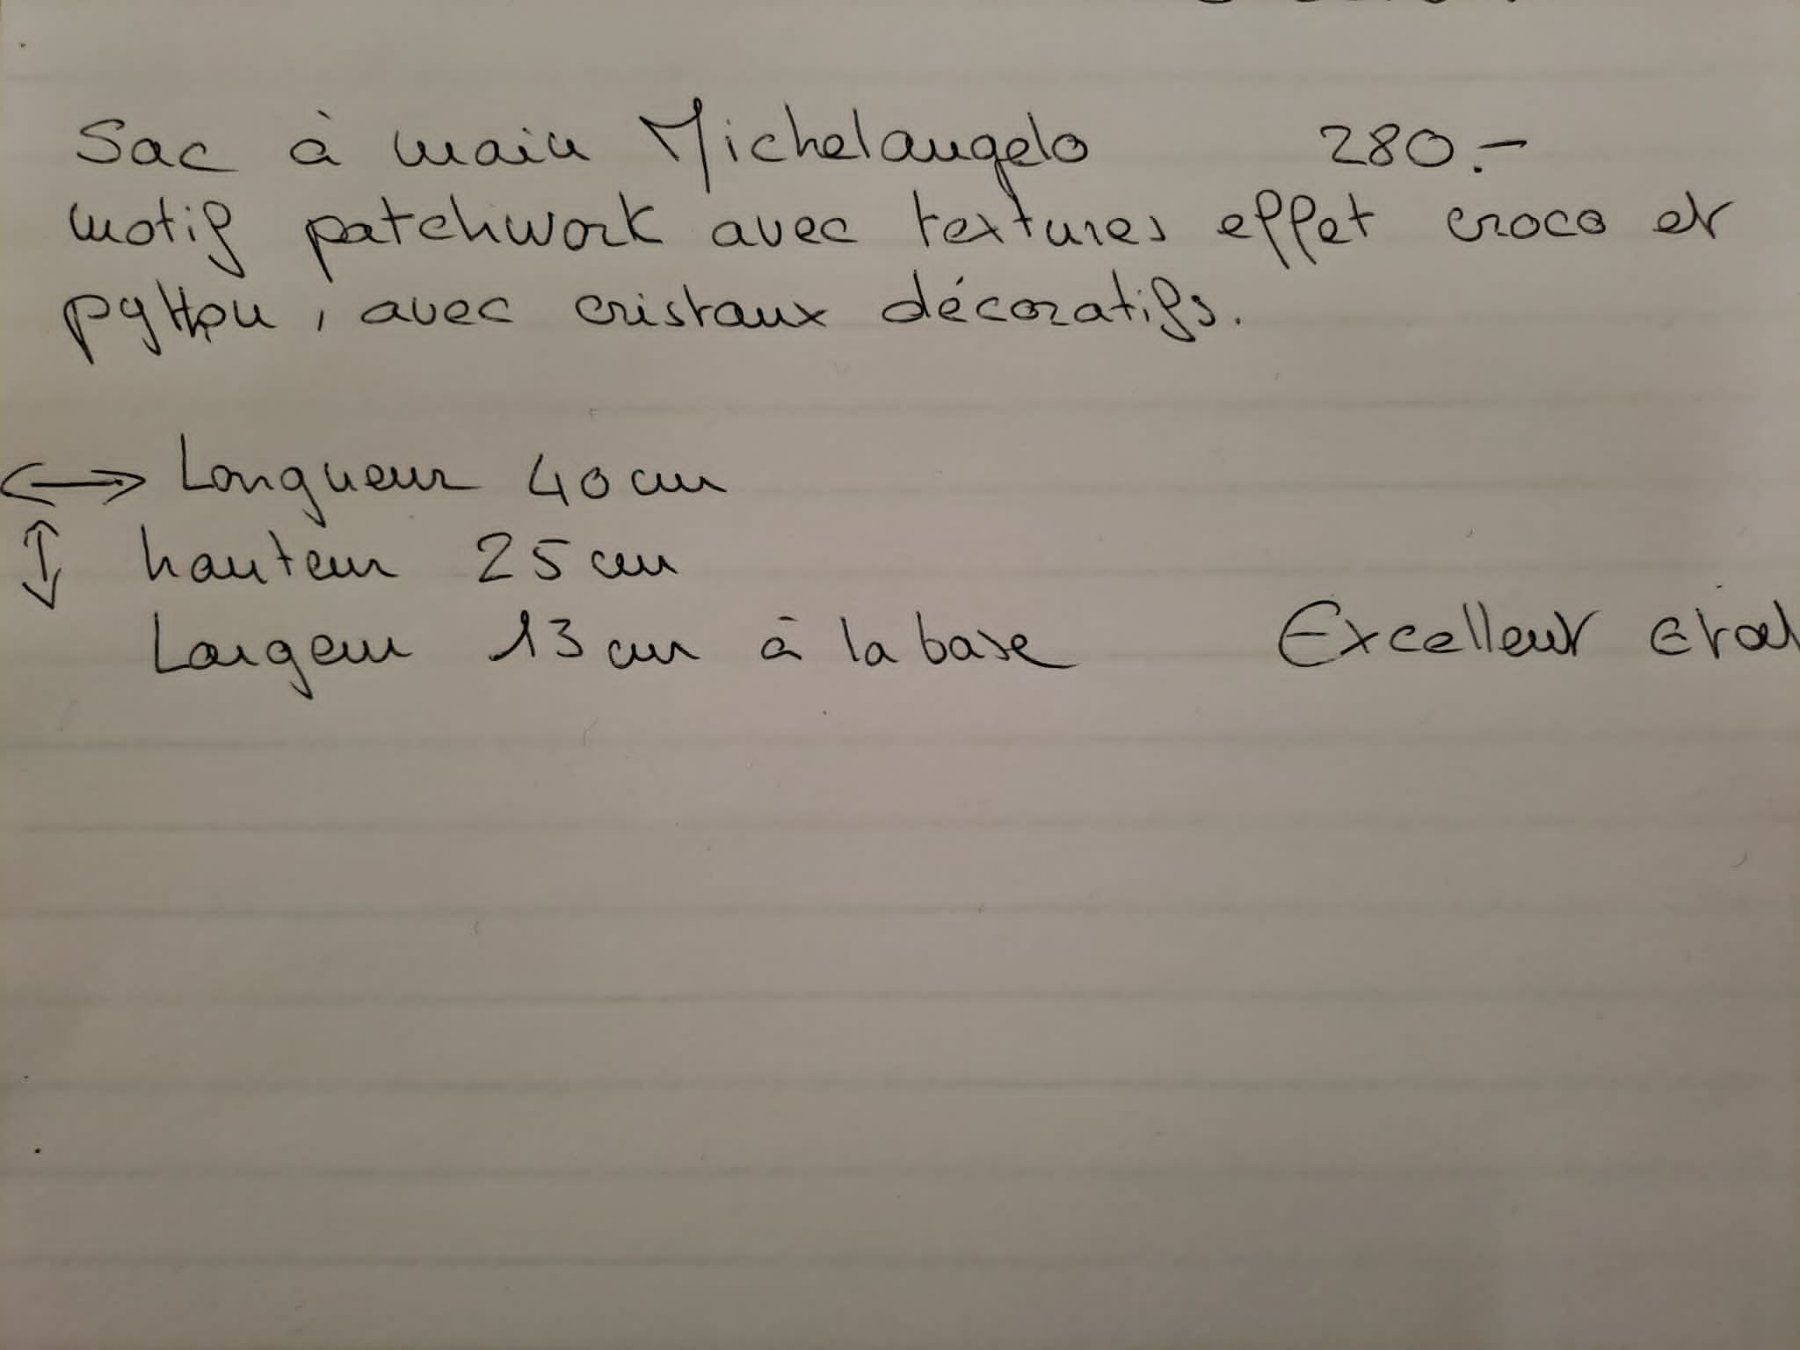 Sac à main Michelangelo 280.-
motif patchwork avec textures effet croco et
python, avec cristaux décoratifs.
↔ Longueur 40 cm
↕ hauteur 25 cm
Largeur 13 cm à la base Excellent etat